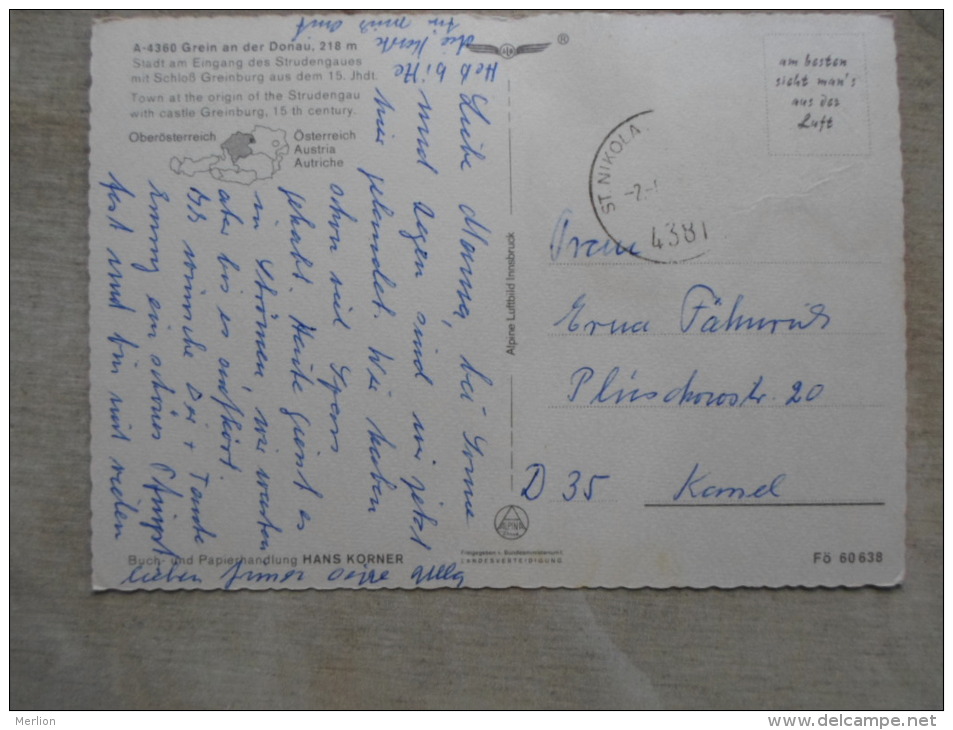 A-4360 Grein an der Donau, 218 m
Stadt am Eingang des Strudengaues
mit Schloß Greinburg aus dem 15. Jhdt.
Town at the origin of the Strudengau
with castle Greinburg, 15 th century.
Oberösterreich
Österreich
Austria
Autriche
Heb bitte
die Karte
für mich auf
Liebe Mama, bei Sonne
und Regen sind wir jetzt
hier gelandet. Wir haben
schon viel Spass
gehabt. Heute giesst es
in Strömen, wir warten
aber bis es aufhört.
Ich wünsche Dir + Tante
Emmy ein schönes Pfingst
fest und bin mit vielen
lieben
Alpine Luftbild Innsbruck
®
am besten
sieht man's
aus der
Luft
ST. NIKOLA
4381
Frau
Erna
Plüschowstr. 20
D 35 Kassel
Buch- und Papierhandlung HANS KÖRNER
ALPINE
Freigegeben v. Bundesministerium f.
LANDESVERTEIDIGUNG
Fö 60638
Merlion
www.delcampe.net